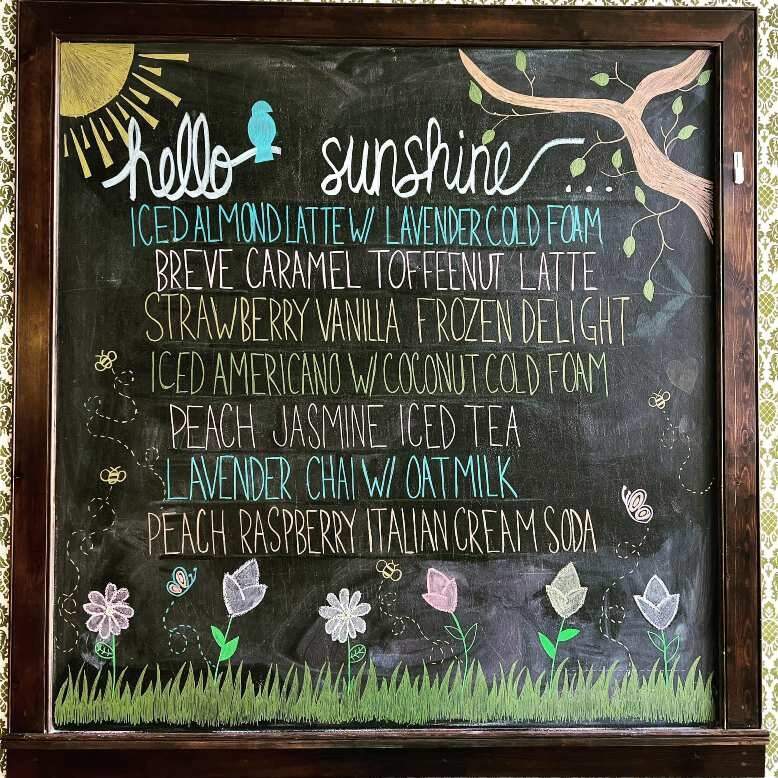 hello sunshine...
ICED ALMOND LATTE W/ LAVENDER COLD FOAM
BREVE CARAMEL TOFFEENUT LATTE
STRAWBERRY VANILLA FROZEN DELIGHT
ICED AMERICANO W/ COCONUT COLD FOAM
PEACH JASMINE ICED TEA
LAVENDER CHAI W/ OATMILK
PEACH RASPBERRY ITALIAN CREAM SODA